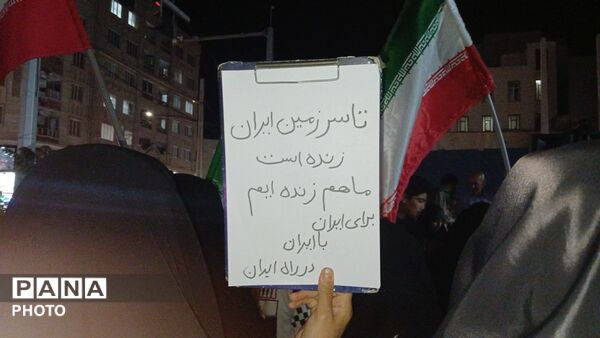 تا سرزمین ایران
زنده است
ما هم زنده ایم
برای ایران
با ایران
در راه ایران
PANA
PHOTO